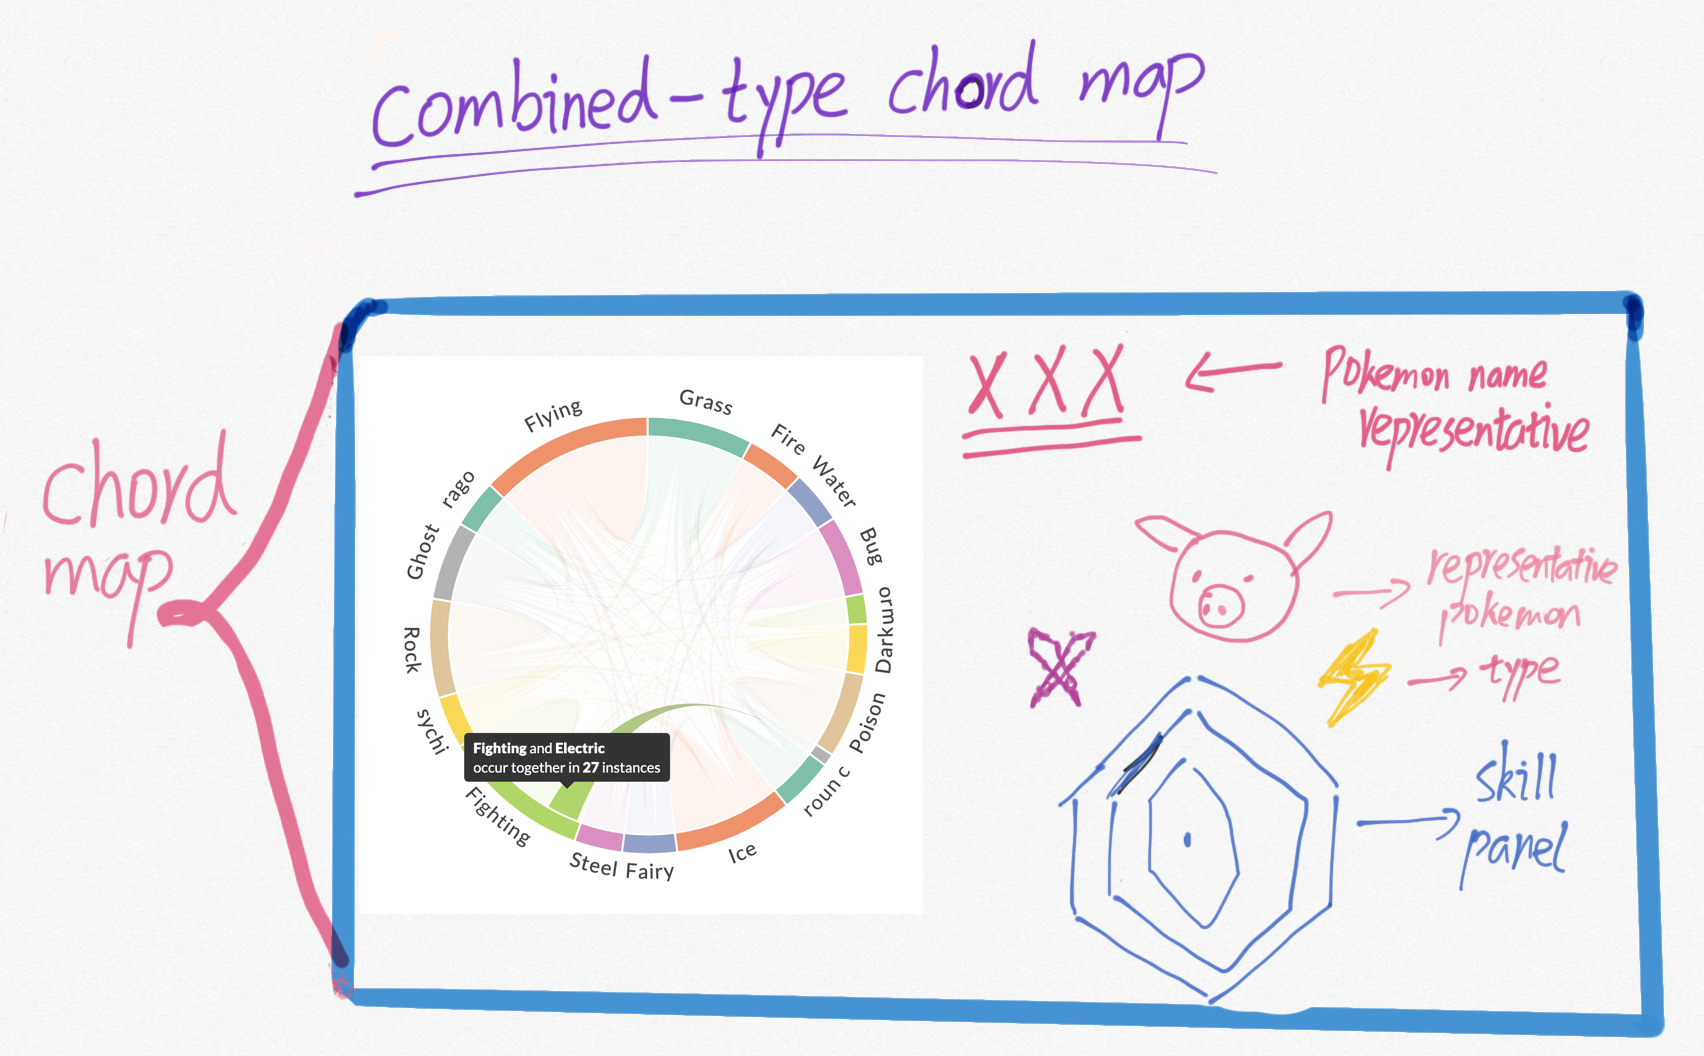 Combined-type chord map
chord
map
Flying
Grass
Fire
Water
Bug
oru
Dark
Poison
roun c
Ice
Fairy
Steel
Fighting
sychi
Rock
Ghost
rago
Fighting and Electric
occur together in 27 instances
XXX
Pokemon name
representative
representative
pokemon
type
skill
panel